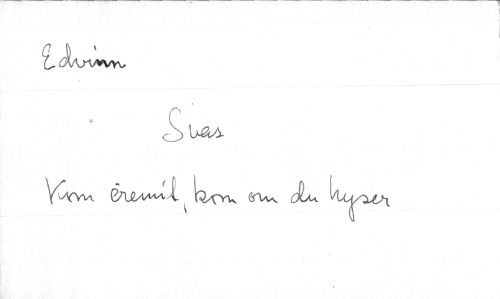 Edvinn
Svas
Kom eremit, kom om du hyser